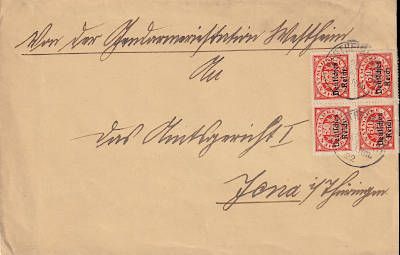 Von der Gendarmeriestation Westheim
An
das Amtsgericht I
Jena i/Thüringen
Deutsches Reich
Deutsches Reich
Deutsches Reich
Deutsches Reich